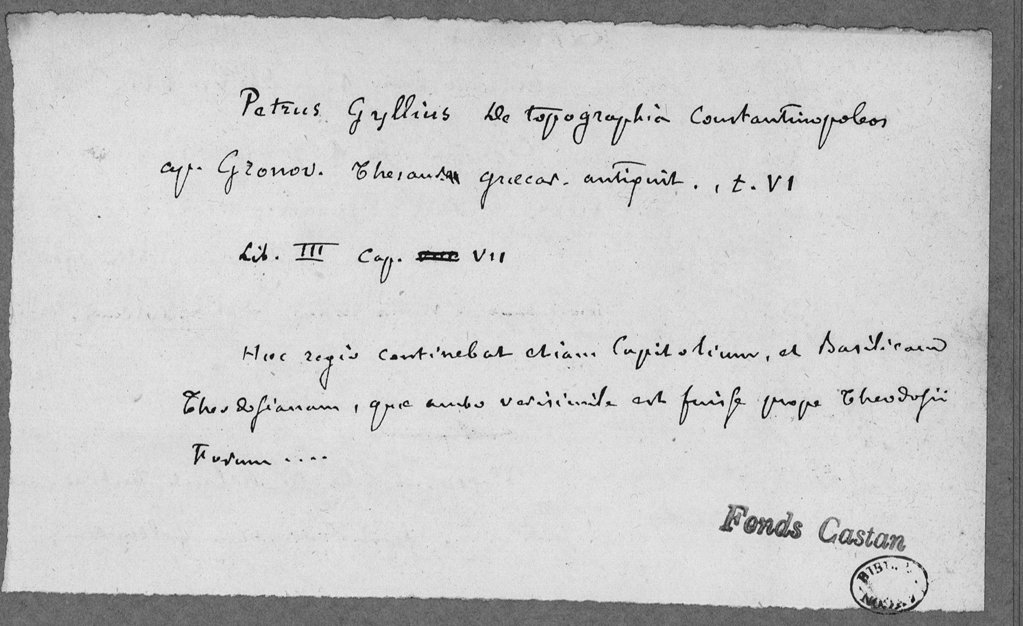 Petrus Gyllius De topographia Constantinopoleos
ap. Gronov. Thesaur. græcar. antiquit., t. VI
Lib. III Cap. VII
Hæc regio continebat etiam Capitolium, et Basilicam
Theodosianam, quæ ambo verisimile est fuisse prope Theodosii
Forum ....
Fonds Castan